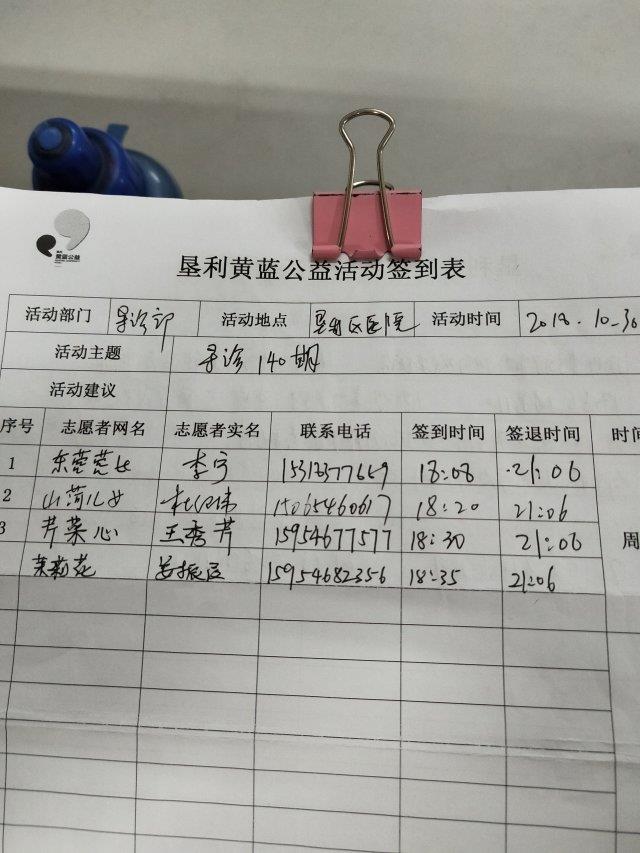 黄蓝公益
垦利黄蓝公益活动签到表
活动部门 导诊部 活动地点 垦利区医院 活动时间 2018.10.30
活动主题 导诊140期
活动建议
序号 志愿者网名 志愿者实名 联系电话 签到时间 签退时间 时间
1 李宁 18:08 21:06
2 山菏儿女 15065460617 18:20 21:06
3 芹菜心 王秀芹 15954677577 18:30 21:06 周
茉莉花 15954682356 18:35 21:06